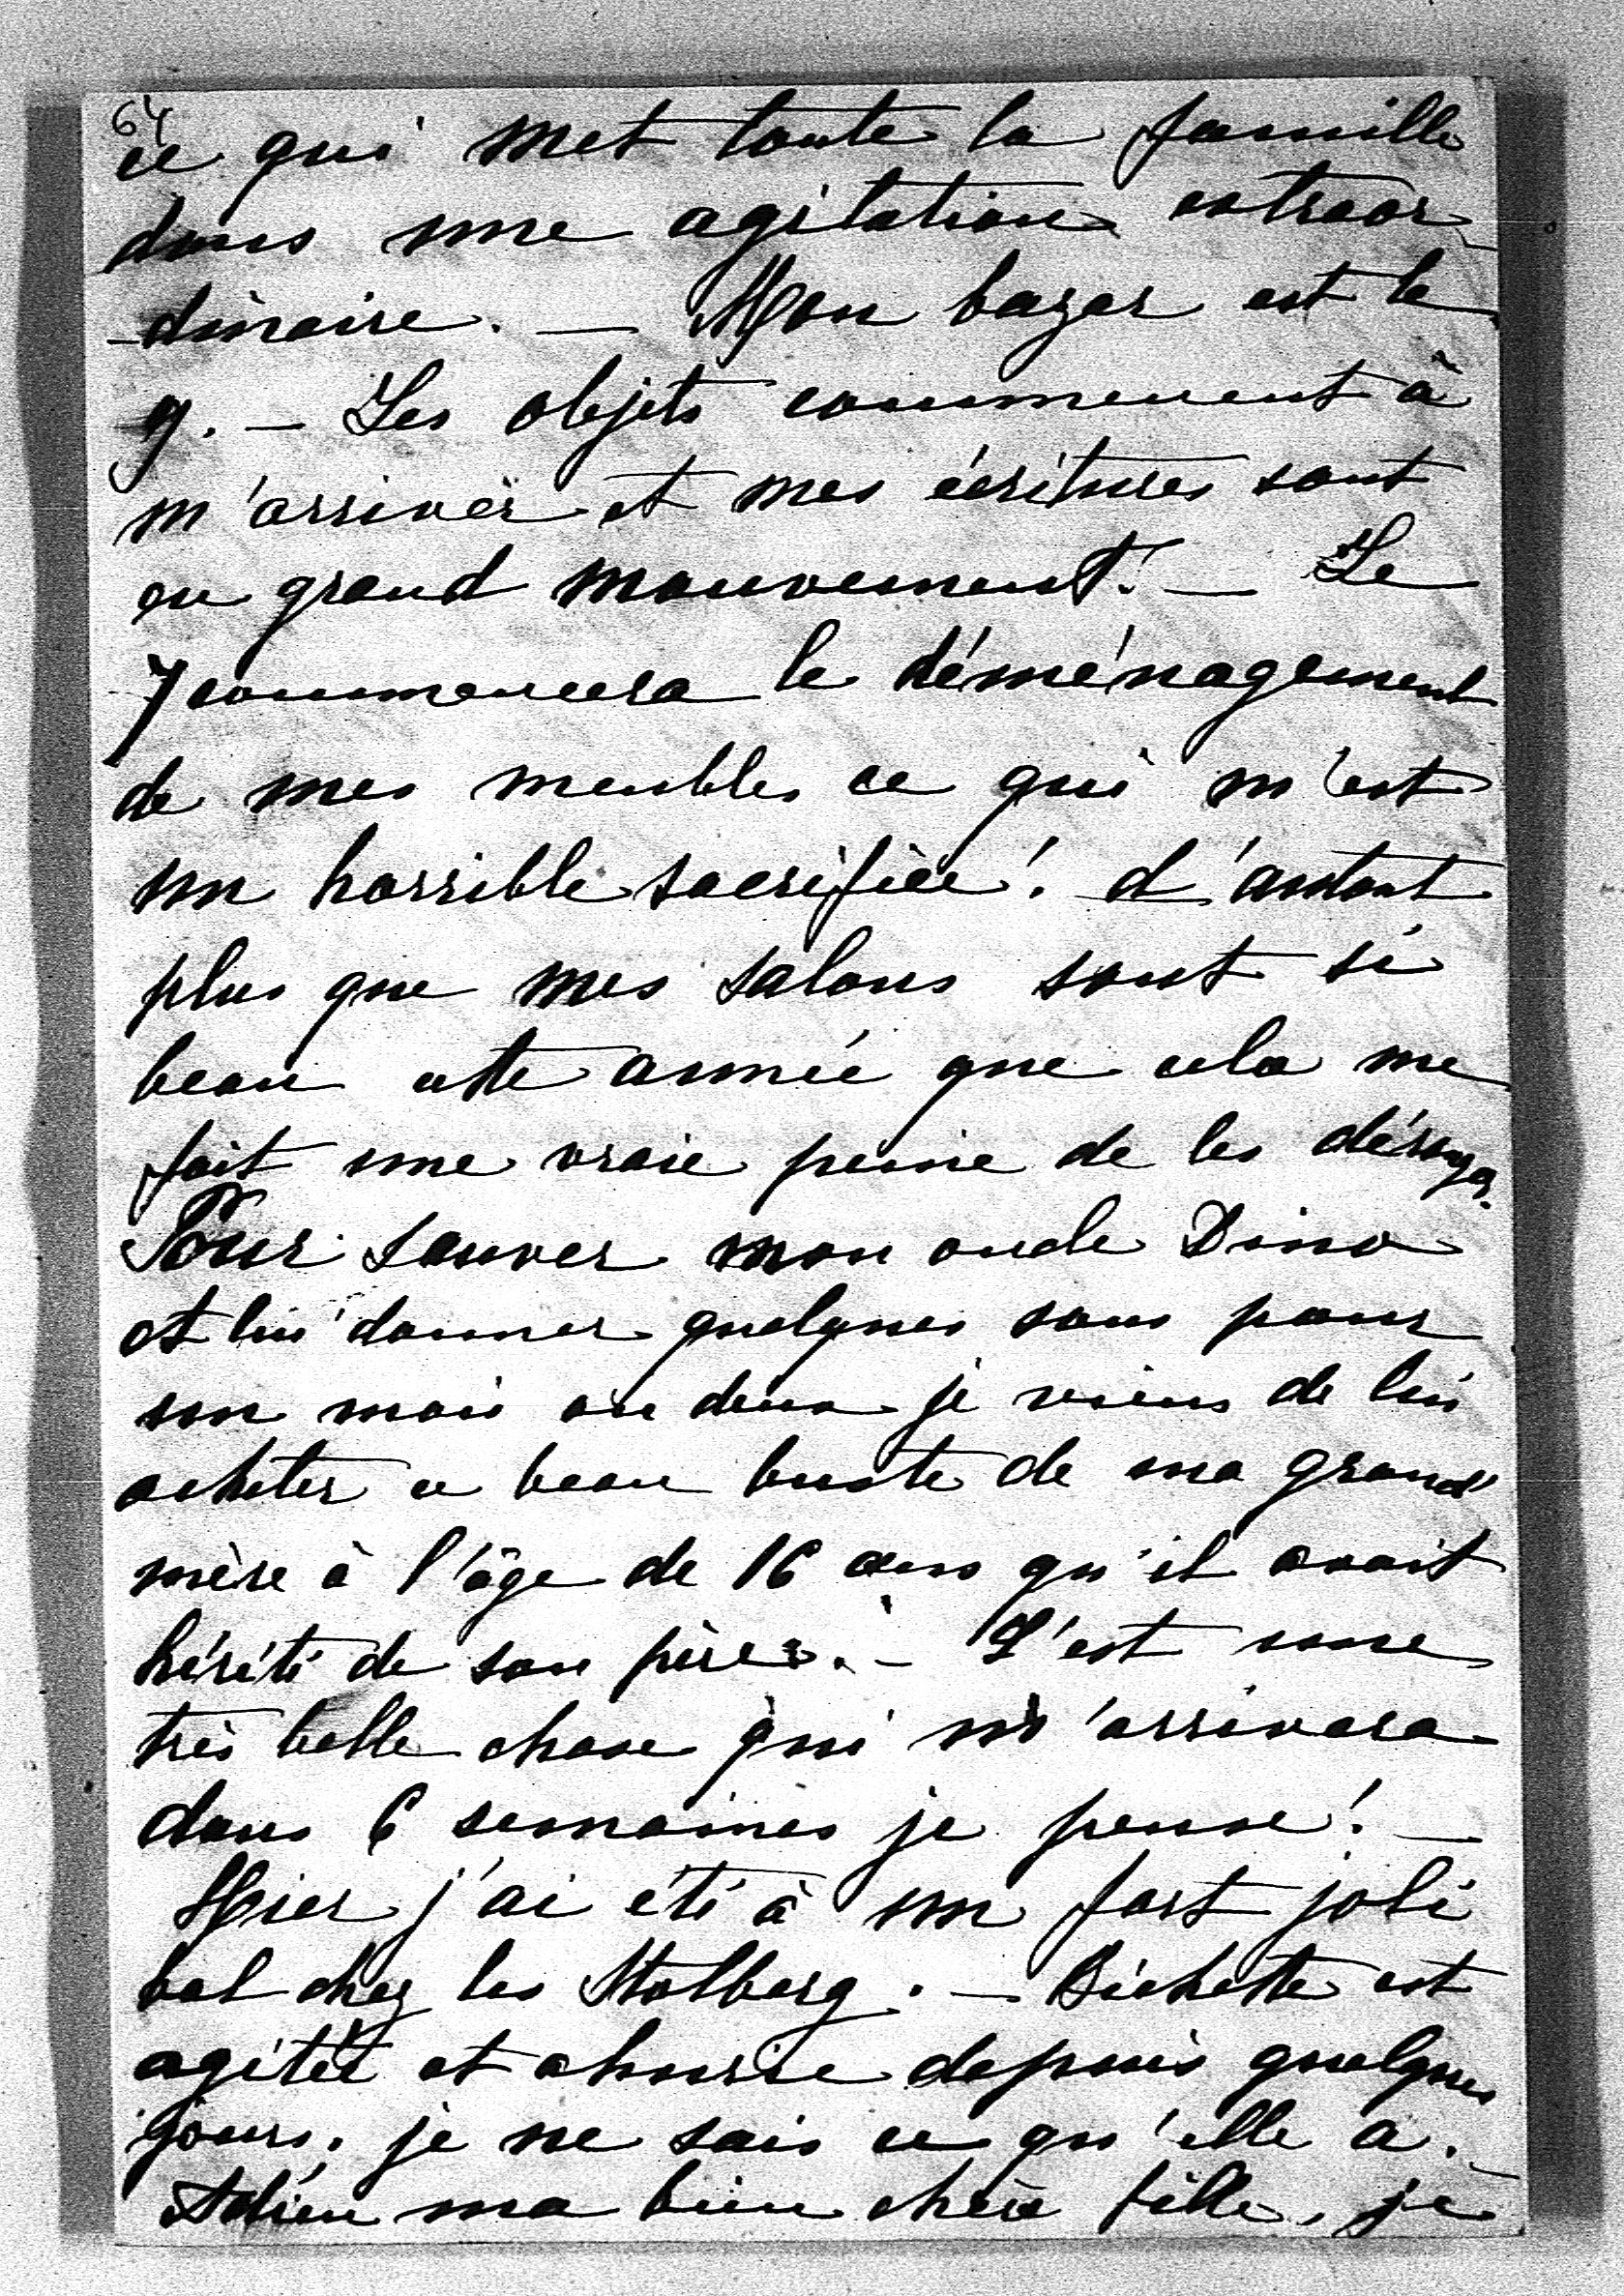 64
ce qui met toute la famille
dans une agitation extraor
-dinaire. — Mon bazar est le
9. — Les objets commencent à
m'arriver et mes écritures sont
en grand mouvement! — Le
7 commencera le déménagement
de mes meubles ce qui m'est
un horrible sacrifice! d'autant
plus que mes salons sont si
beau cette année que cela me
fait une vraie peine de les déranger.
Pour sauver mon oncle Dino
et lui donner quelques sous pour
son mois ou deux je viens de lui
acheter ce beau buste de ma grand'
mère à l'âge de 16 ans qu'il avait
hérité de son père. — C'est une
très belle chose qui m'arrivera
dans 6 semaines je pense! —
Hier j'ai été à un fort joli
bal chez les Stolberg. — Bichette est
agitée et ahurie depuis quelques
jours, je ne sais ce qu'elle a. —
Adieu ma bien chère fille, je